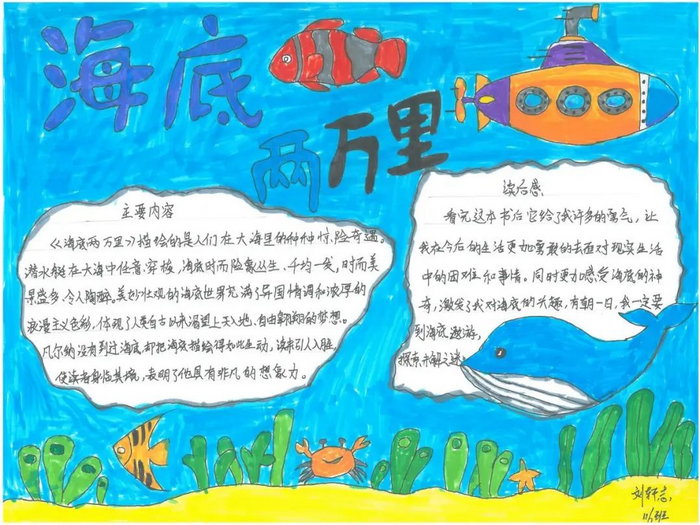 海底
两万里
主要内容
《海底两万里》描绘的是人们在大海里的种种惊险奇遇。
潜水艇在大海中任意穿梭，海底时而险象丛生、千钧一发，时而美
景盛多、令人陶醉。美妙壮观的海底世界充满了异国情调和浓厚的
浪漫主义色彩，体现了人类自古以来渴望上天入地、自由翱翔的梦想。
凡尔纳没有到过海底，却把海底描绘得如此生动，读来引人入胜，
使读者身临其境，表明了他具有非凡的想象力。
读后感
看完这本书后它给了我许多的勇气，让
我在今后的生活更加勇敢的去面对现实生活
中的困难和事情。同时更加感受海底的神
奇，激发了我对海底的兴趣，有朝一日，我一定要
到海底遨游，
探索未解之谜。
刘轩志